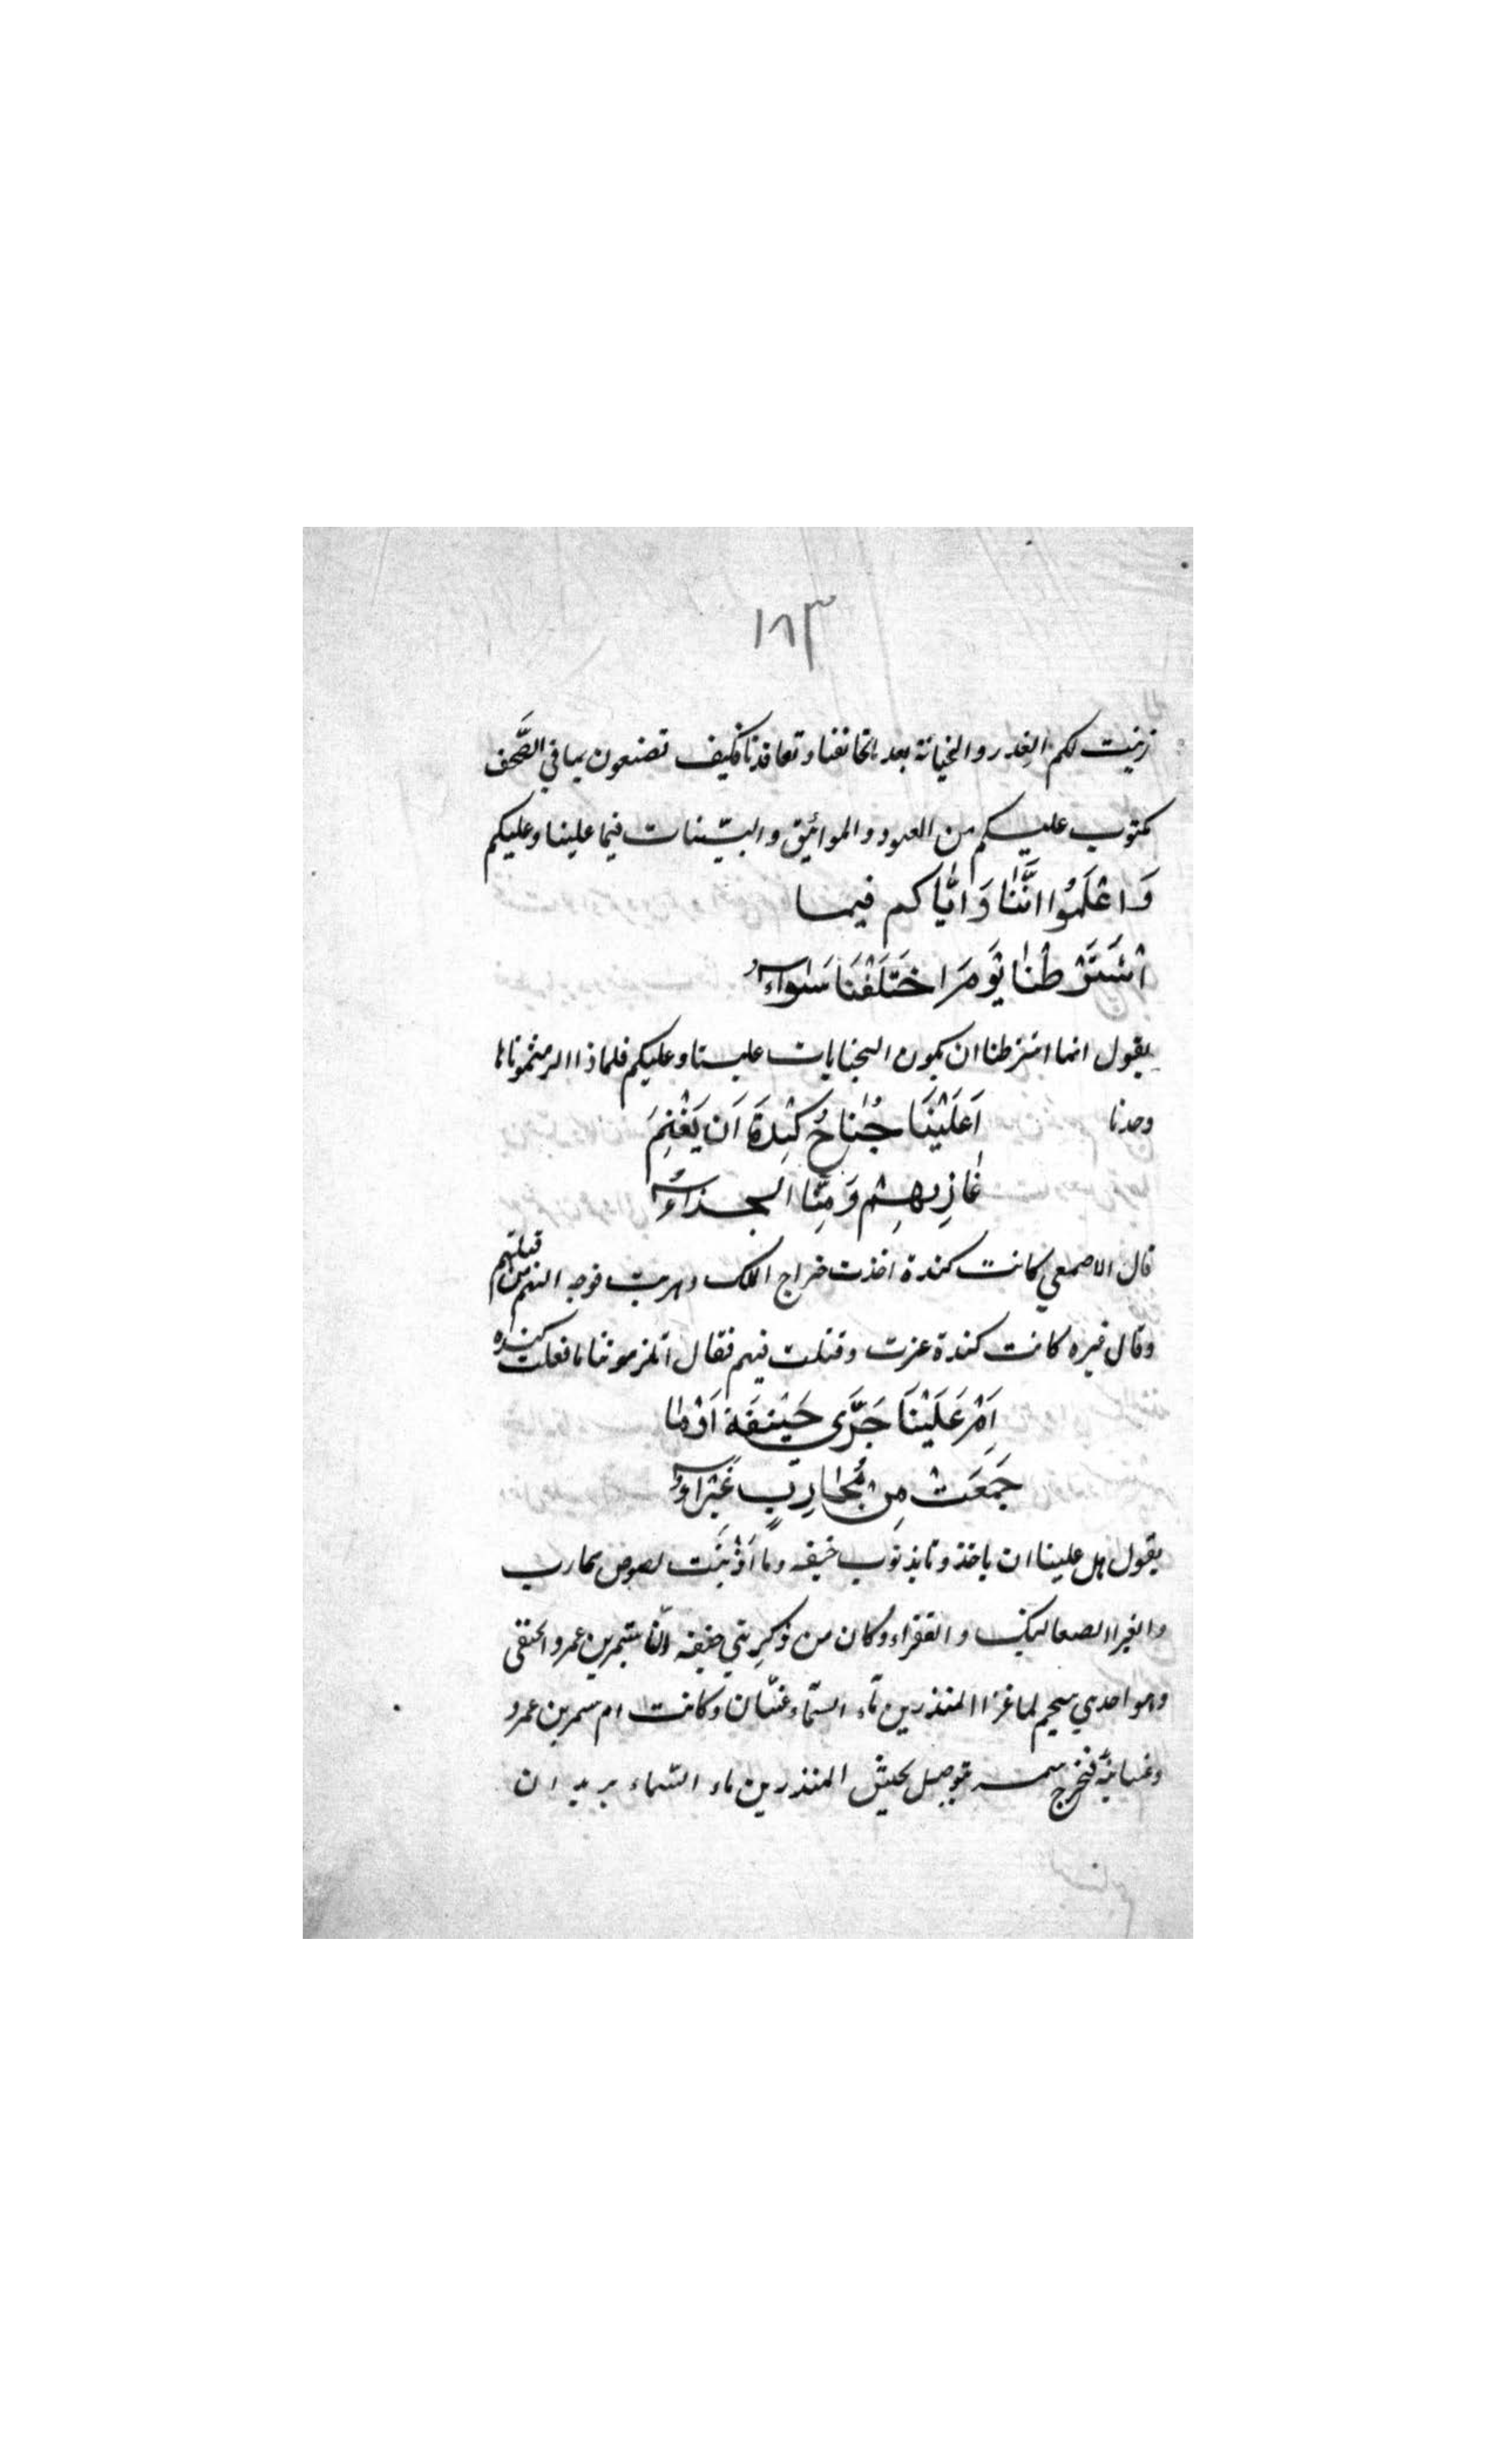 ١٨٣
زينت لكم الغدر والخيانة بعد تحالفنا وتعاقدنا فكيف تصنعون بما في الصَّحف
مكتوب عليكم من العهود والمواثيق والبيّنات فيما علينا وعليكم
وَاعْلَمُوا انَّنَا وَايَّاكم فيما
اشْتَرَطْنَا يَوْمَ اخْتَلَفْنَا سَوَاءُ
يقول انما اشترطنا ان يكون الجنايات علينا وعليكم فلماذا الزمتمونا
وحدنا
اَعَلَيْنَا جُنَاحُ كِنْدَةَ اَن يَغْنَمَ
غَازِيهِمْ وَمِنَّا الجَزَاءُ
قال الاصمعي كانت كندة اخذت خراج الملك وهربت فوجه اليهم من قتلهم
وقال غيره كانت كندة غزت وقتلت فيهم فقال اتلزموننا ما فعلت كنده
اَمْ عَلَيْنَا جَرَّى حَنِيفَة اَوْ مَا
جَمَعَتْ مِنْ مُحَارِبٍ غَبْرَاءُ
يقول هل علينا ان ياخذونا بذنوب حنيفه وما اَذْنَبَت لصوص محارب
والغبرا الصعاليك والفقراء وكان من ذكر بني حنيفه انّ شمر بن عمرو الحنفي
وهو احد بني سحيم لما غزا المنذر بن ماء السّماء غسّان وكانت ام شمر بن عمرو
وغسانيّة فخرج يتوصل بجيش المنذر بن ماء السّماء يريد ان